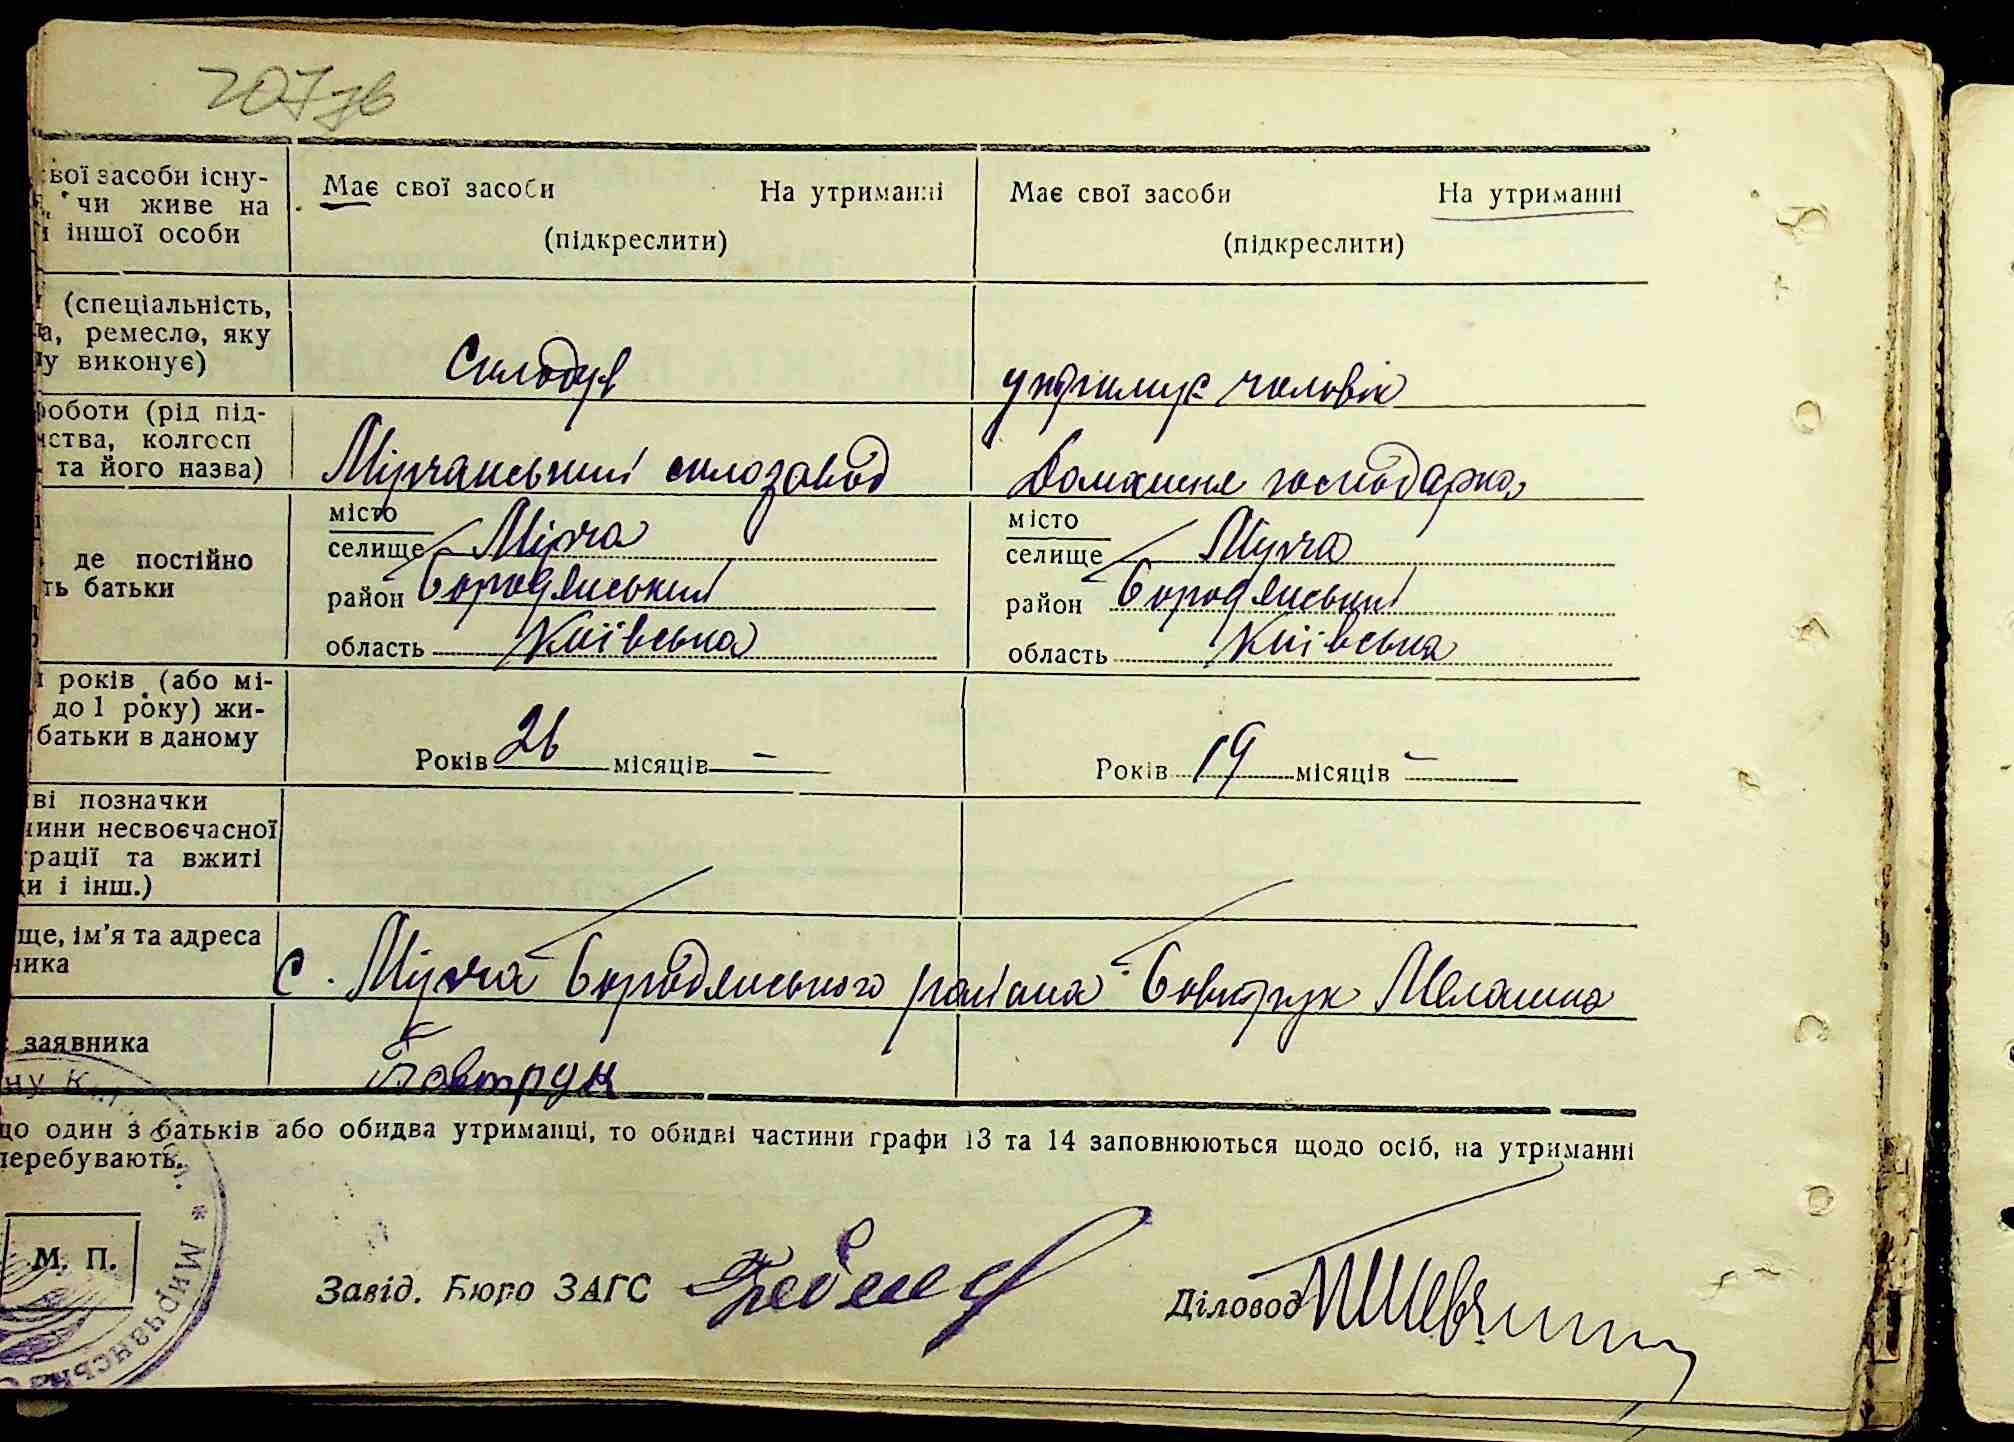 207зв
вої засоби існу-
чи живе на
іншої особи
Має свої засоби На утриманні
(підкреслити)
Має свої засоби На утриманні
(підкреслити)
(спеціальність,
а, ремесло, яку
у виконує)
Склодув
утримує чоловік
роботи (рід під-
ства, колгосп
та його назва)
Мірчанський склозавод
Домашня господарка
де постійно
ть батьки
місто
селище Мірча
район Бородянський
область Київська
місто
селище Мірча
район Бородянський
область Київська
років (або мі-
до 1 року) жи-
батьки в даному
Років 26 місяців —
Років 19 місяців —
ві позначки
ини несвоєчасної
рації та вжиті
и і інш.)
ще, ім'я та адреса
ника
с. Мірча Бородянського района Бовтрук Мелашка
заявника
Бовтрук
до один з батьків або обидва утриманці, то обидві частини графи 13 та 14 заповнюються щодо осіб, на утриманні
перебувають.
М. П.
Мирчанська
Завід. Бюро ЗАГС
Діловод